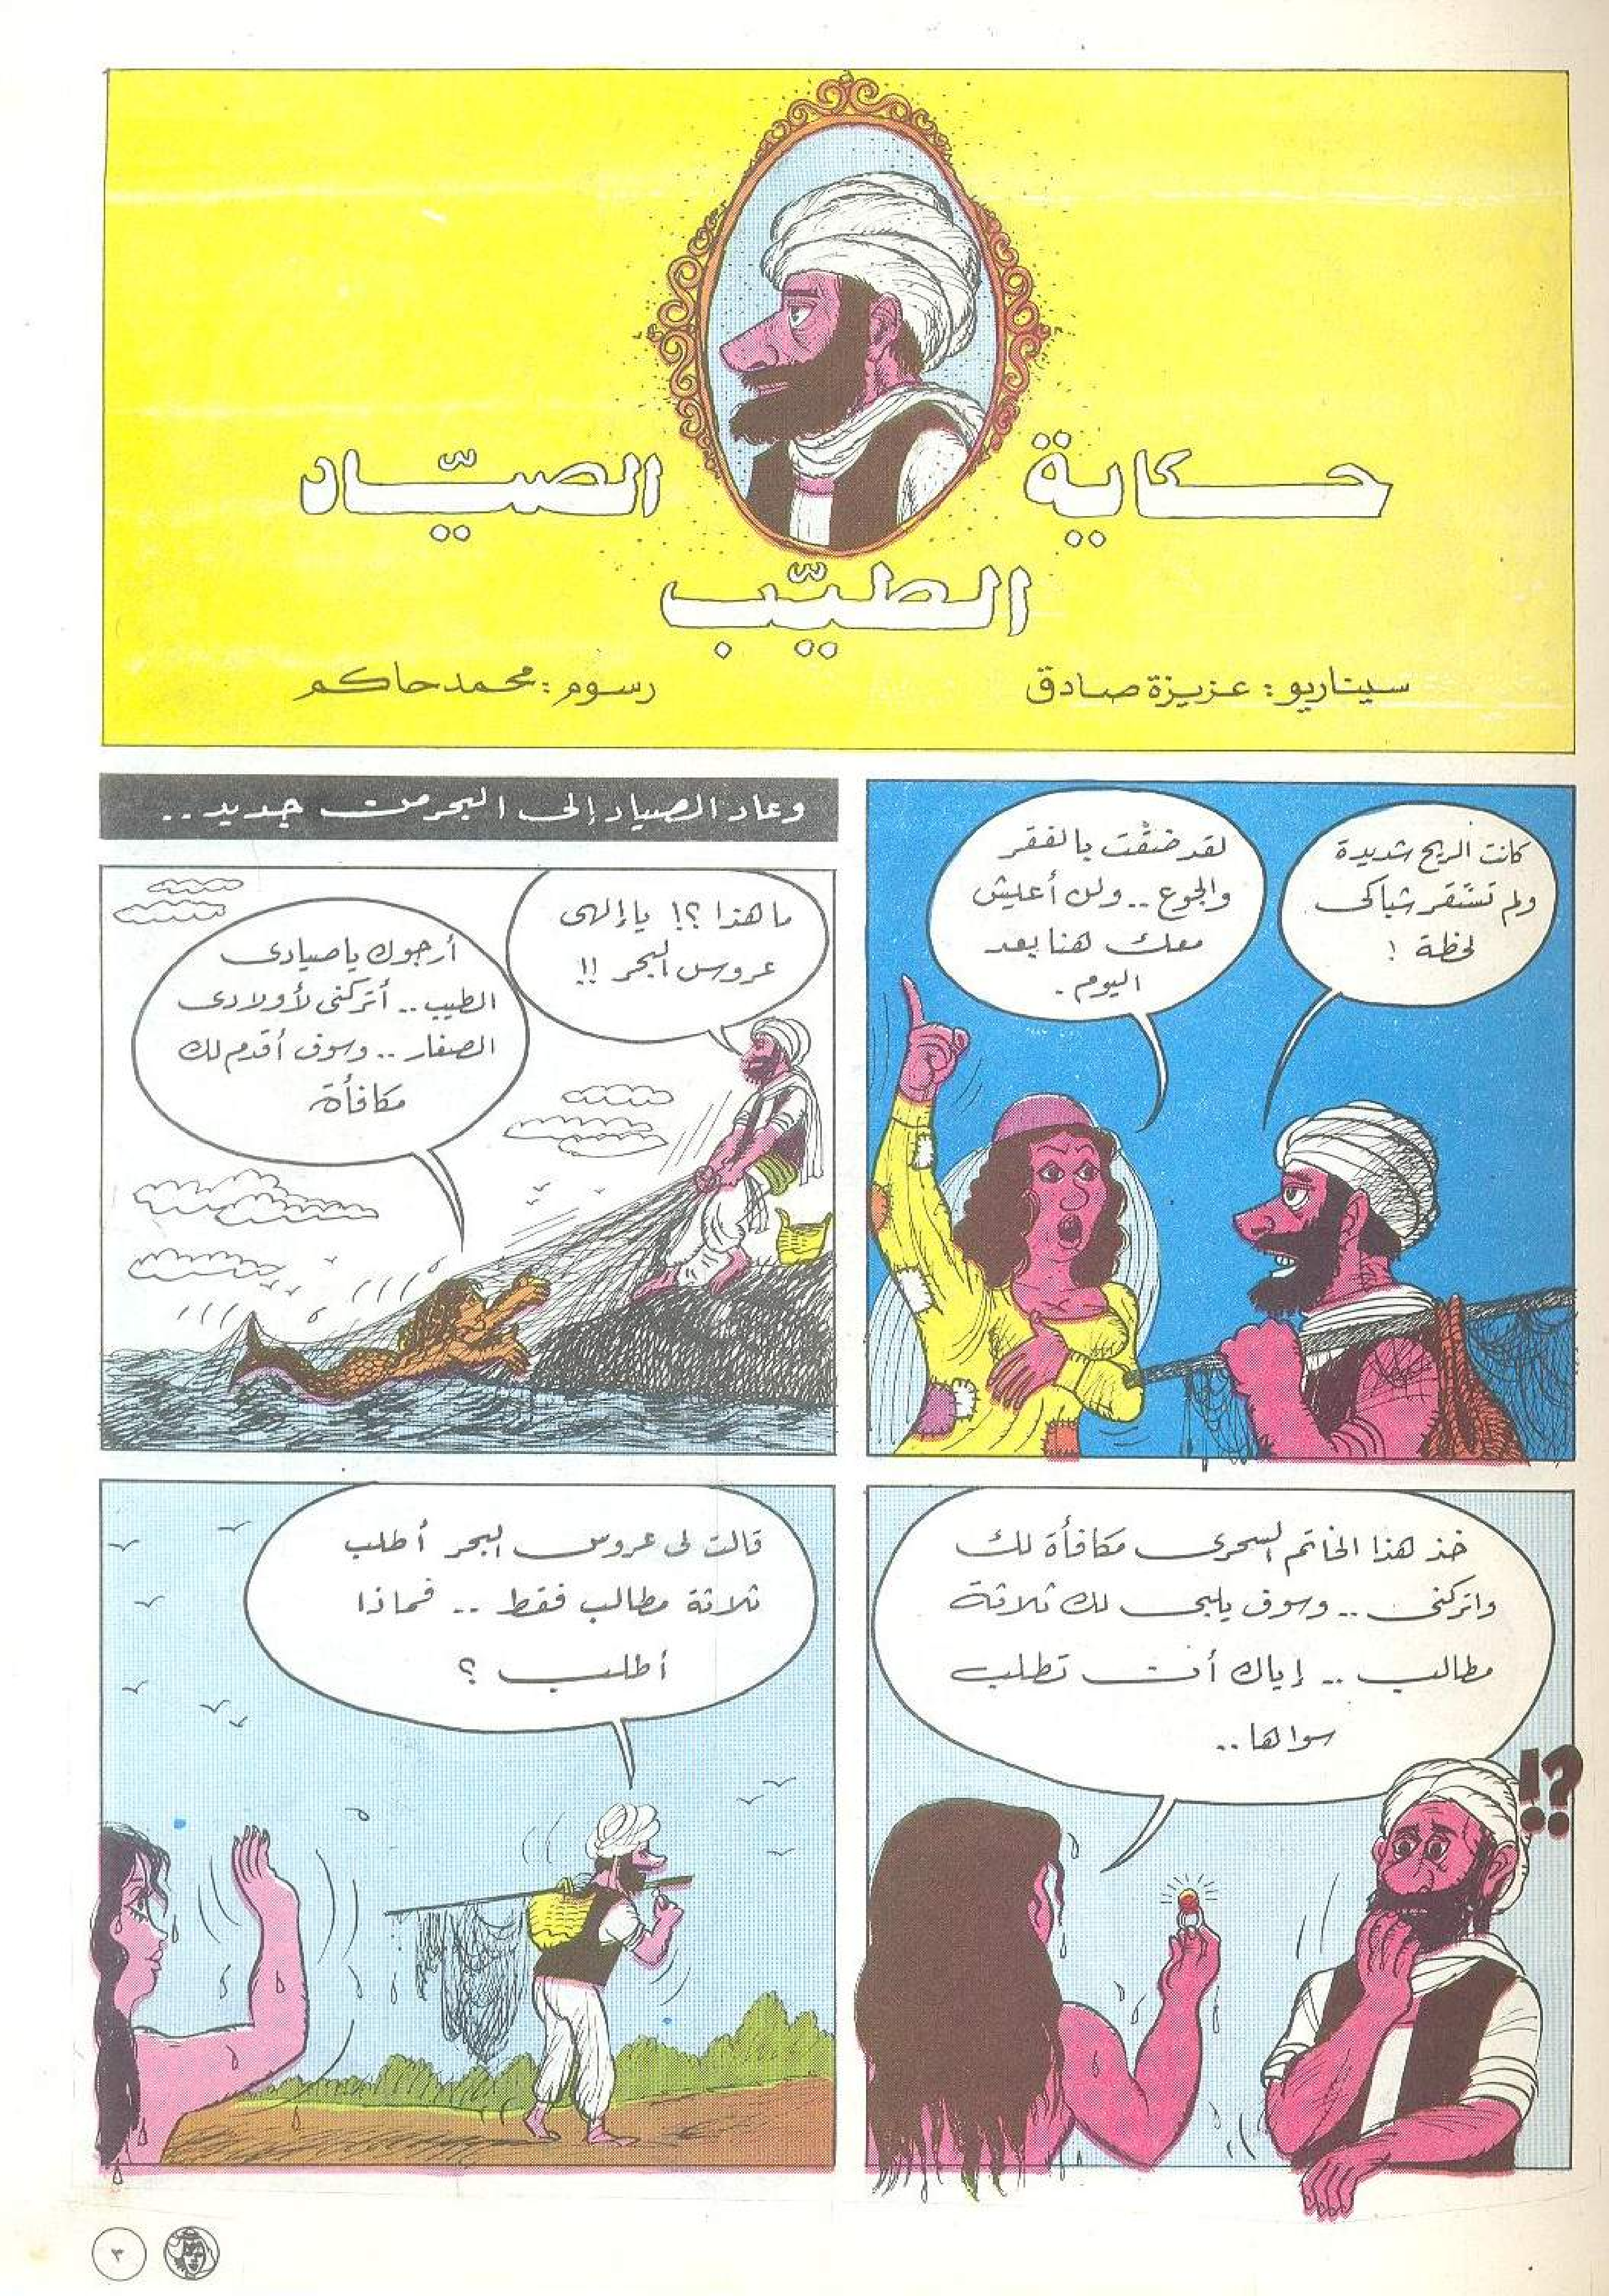 حكاية الصيّاد
الطيّب
سيناريو : عزيزة صادق
رسوم : محمد حاكم
كانت الريح شديدة
ولم تستقر شباكى
لحظة !
لقد ضقت بالفقر
والجوع .. ولن أعيش
معك هنا بعد
اليوم .
وعاد الصياد إلى البحر من جديد ..
ما هذا ؟! يا إلهى
عروس البحر !!
أرجوك يا صيادى
الطيب .. أتركنى لأولادى
الصغار .. وسوف أقدم لك
مكافأة
خذ هذا الخاتم السحرى مكافأة لك
واتركنى .. وسوف يلبى لك ثلاثة
مطالب .. إياك أن تطلب
سواها ..
!?
قالت لى عروس البحر أطلب
ثلاثة مطالب فقط .. فماذا
أطلب ؟
٣